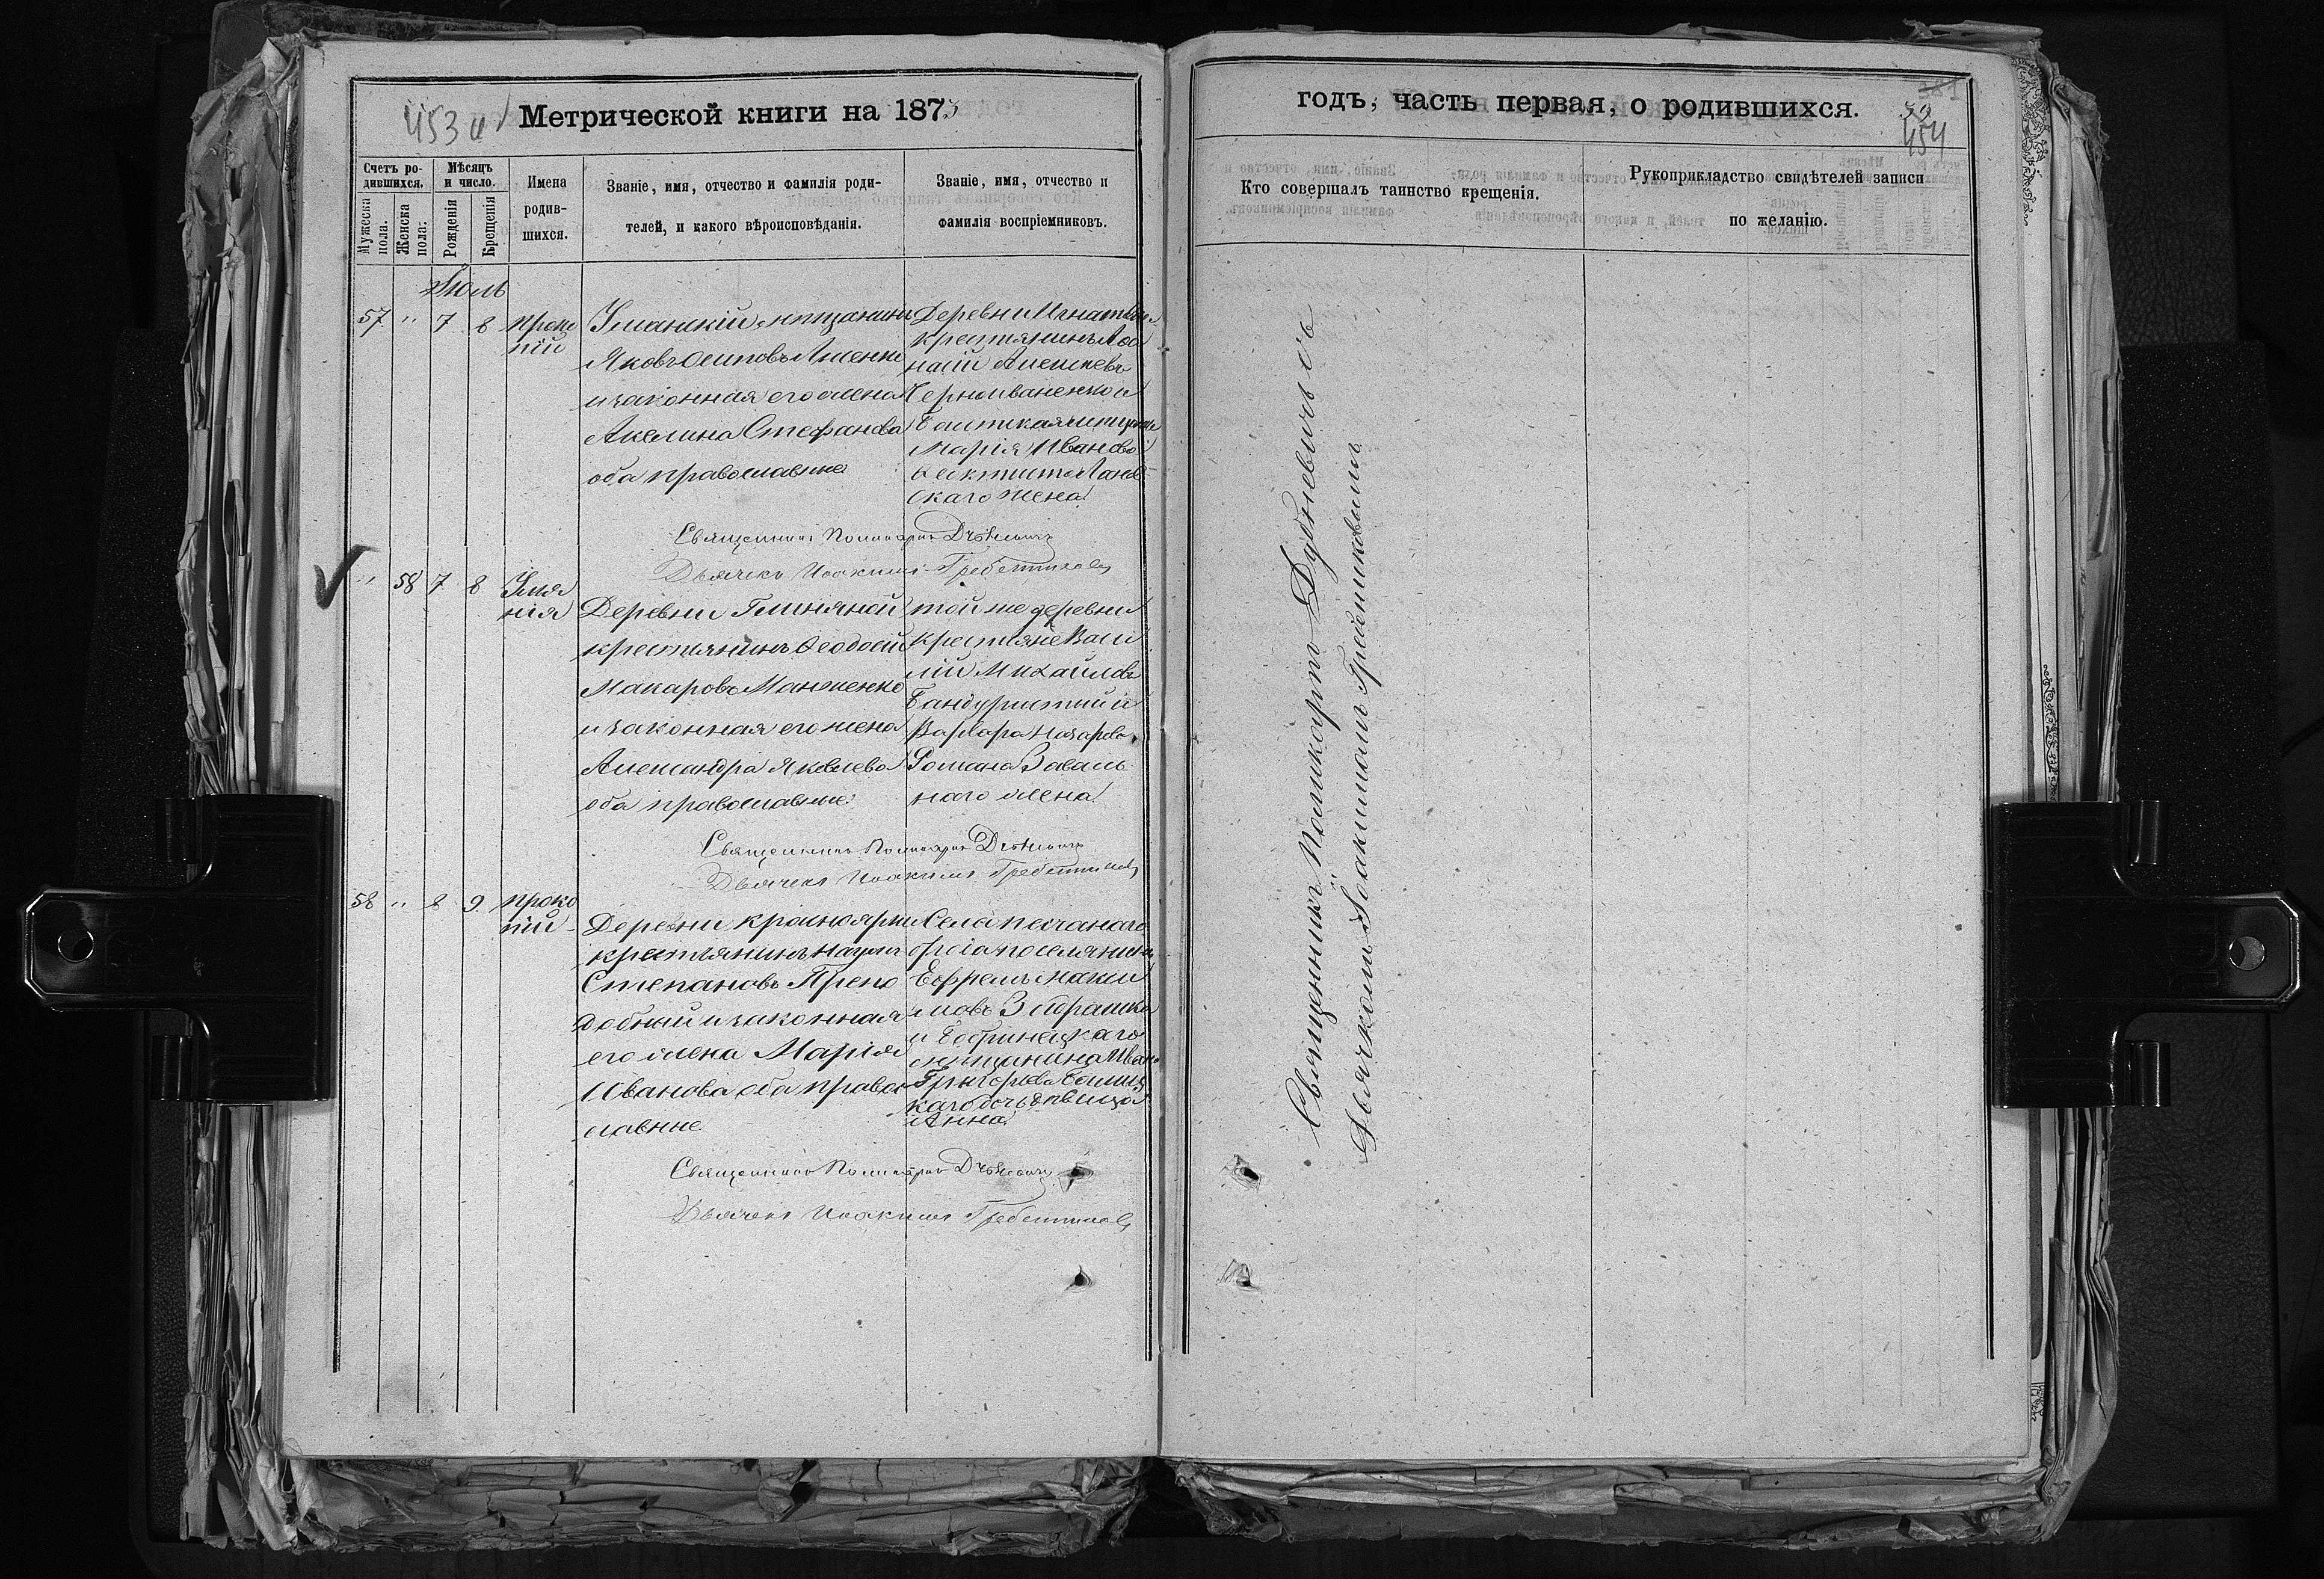 453 и
Метрической книги на 1873
Счетъ ро-
дившихся.
Мужеска
пола.
Женска
пола.
Мѣсяцъ
и число.
Рожденія
Крещенія
Имена
родив-
шихся.
Званіе, имя, отчество и фамилія роди-
телей, и какого вѣроисповѣданія.
Званіе, имя, отчество и
фамилія воспріемниковъ.
Июль
57 " 7 8
Проко
пій
Уманскій мѣщанинъ
Яковъ Осиповъ
и законная его жена
Акелина Стефанова
оба православные
Деревни Игнатьевки
крестьянинъ
Алексѣевъ
Черноиваненко и
Марія Иванова
Ѳеоктиста
скаго жена
Священникъ Поликарпъ Дубневичъ
Дьячекъ Иоакимъ Гребенниковъ
" 58 7 8
Деревни Глиняной
крестьянинъ Ѳеодосій
Макаровъ Манженко
и законная его жена
Александра Яковлева
оба православные
той же деревни
крестьяне Васи
лій Михайловъ
Бандуристый и
Варвара Назарова
Романа Заваль
наго жена
Священникъ Поликарпъ Дубневичъ
Дьячекъ Иоакимъ Гребенниковъ
58 " 8 9
Проко
пій
Деревни Красноярки
крестьянинъ Наумъ
Степановъ Препо
добный и законная
его жена Марія
Иванова оба право
славные
Села Песчанаго
поселянинъ
Ефремъ Макси
мовъ
и Бобринецкаго
мѣщанина Ивана
Григорьева
каго дочь дѣвица
Анна
Священникъ Поликарпъ Дубневичъ
Дьячекъ Иоакимъ Гребенниковъ
годъ, часть первая, о родившихся.
381
39
454
Кто совершалъ таинство крещенія.
Рукоприкладство свидѣтелей записи
по желанію.
Священникъ Поликарпъ Дубневичъ съ
Дьячкомъ Іоакимомъ Гребенниковымъ